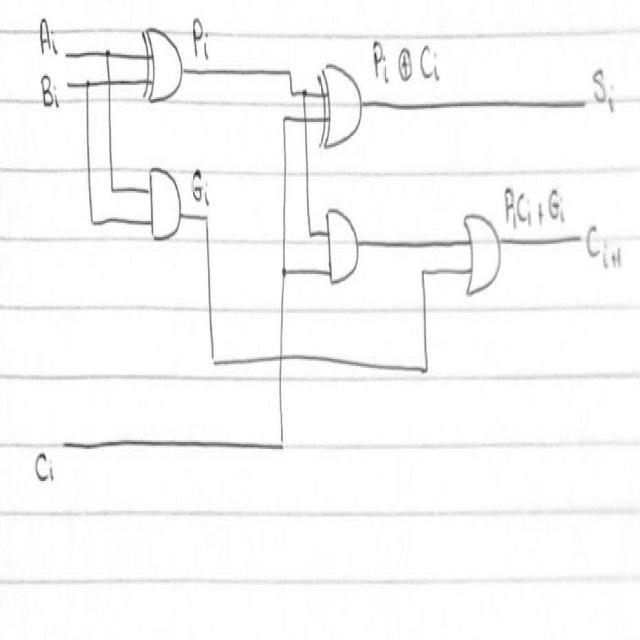 Ai
Pi
Pi ⊕ Ci
Bi
Si
Gi
PiCi + Gi
Ci+1
Ci